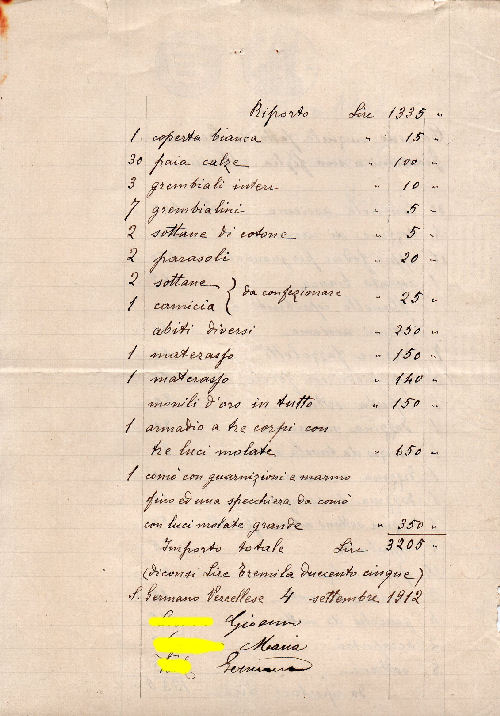 Riporto Lire 1335 "
1 coperta bianca " 15 "
30 paia calze " 100 "
3 grembiali interi " 10 "
7 grembialini " 5 "
2 sottane di cotone " 5 "
2 parasoli " 20 "
2 sottane
da confezionare " 25 "
1 camicia
abiti diversi " 250 "
1 materasso " 150 "
1 materasso " 140 "
monili d'oro in tutto " 150 "
1 armadio a tre corpi con
tre luci molate " 650 "
1 comò con guarnizioni e marmo
fino ed una specchiera da comò
con luci molate grande " 350 "
Importo totale Lire 3205 "
(diconsi Lire Tremila duecento cinque)
S. Germano Vercellese 4 settembre 1912
Giovanni
Maria